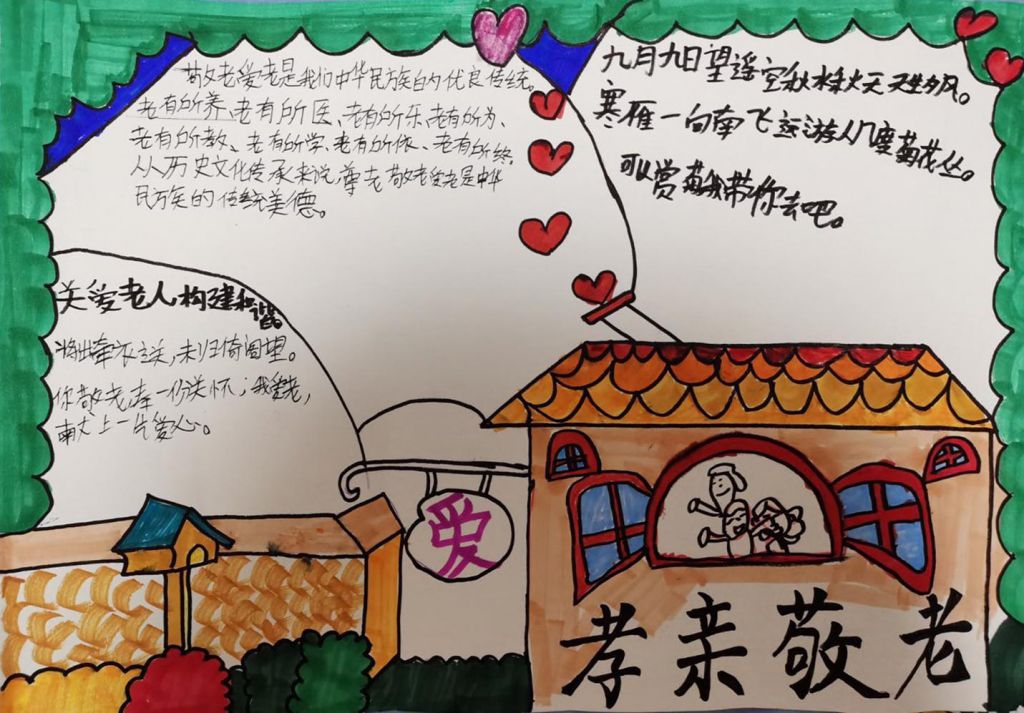 敬老爱老是我们中华民族的优良传统。
老有所养、老有所医、老有所乐、老有所为、
老有所教、老有所学、老有所依、老有所终
从从历史文化传承来说，尊老敬老爱老是中华
民万矢的传统美德。
九月九日望遥空秋水秋天生夕风。
寒雁一向南飞远游人几度菊花丛。
可以赏菊我带你去吧。
关爱老人构建和谐
将出牵衣送，未归倚阁望。
你敬老奉一份关怀；我爱老，
献上一片爱心。
爱
孝亲敬老